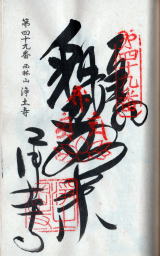 第四十九番 西林山 浄土寺
第四十九番
奉拝
釈迦如来
浄土寺